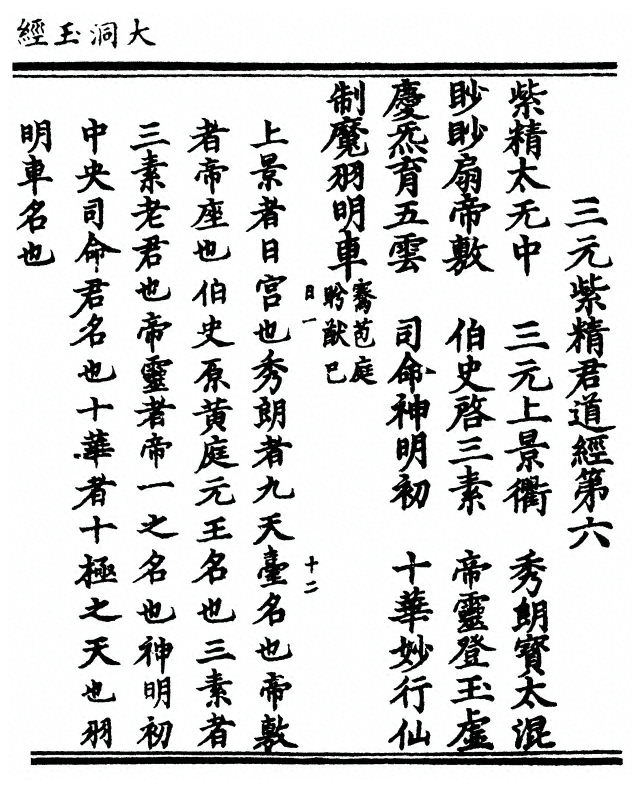 大洞玉經
三元紫精君道經第六
紫精太无中 三元上景衢 秀朗寶太混
眇眇扇帝敷 伯史啓三素 帝靈登玉虛
慶炁育五雲 司命神明初 十華妙行仙
制魔羽明車 騫芭庭
盻猷巳
日一 十二
上景者日宮也秀朗者九天臺名也帝敷
者帝座也伯史原黃庭元王名也三素者
三素老君也帝靈者帝一之名也神明初
中央司命君名也十華者十極之天也羽
明車名也